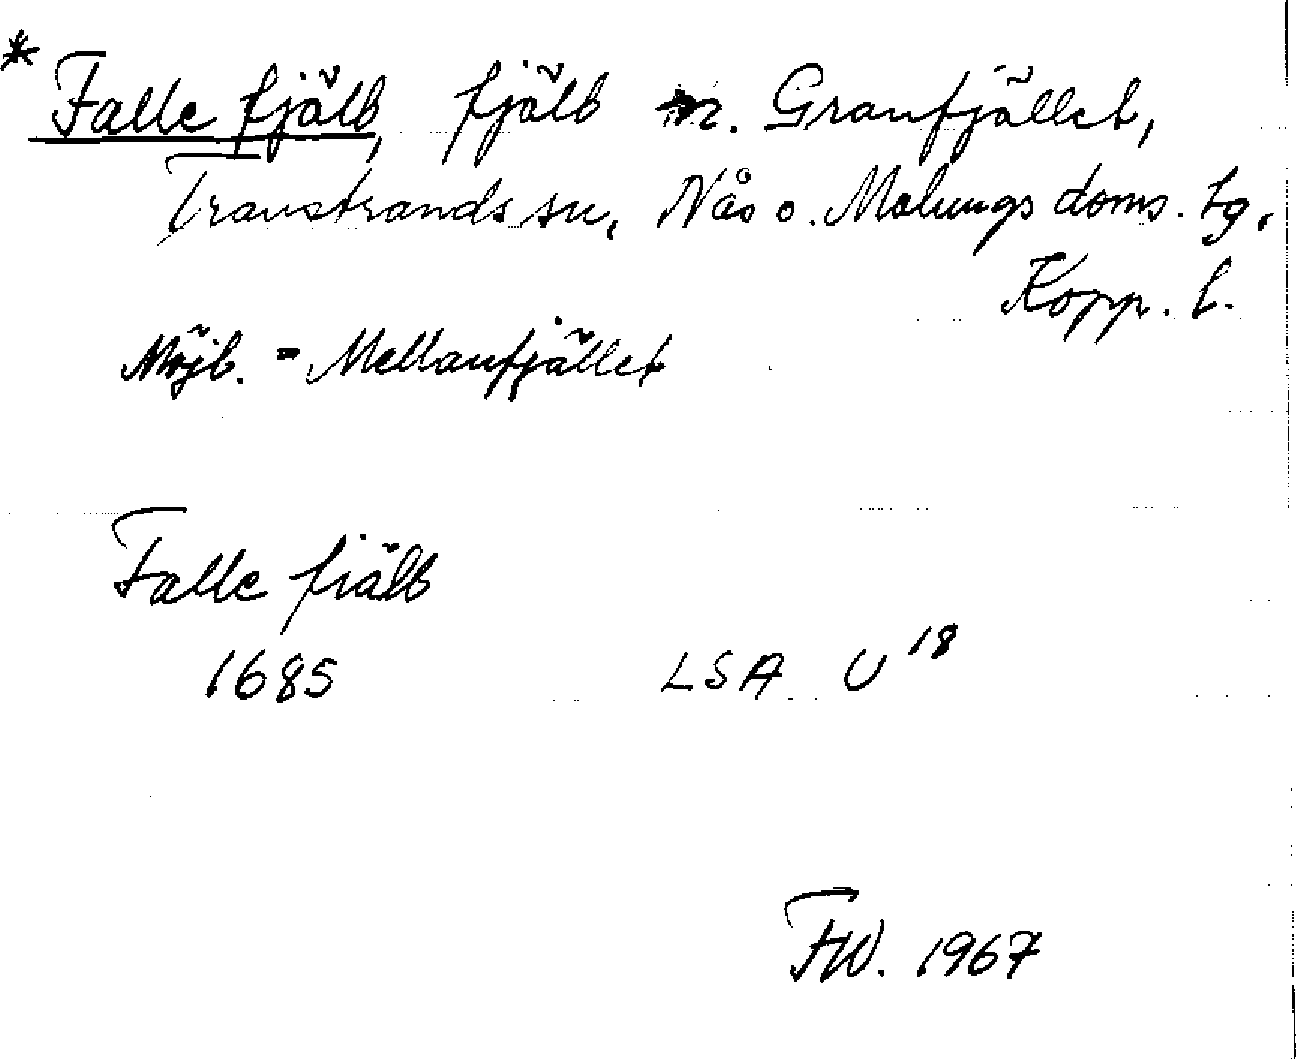 * Falle fjäll, fjäll n. Granfjället,
Transtrands sn, Nås o. Malungs doms. tg,
Kopp. l.
Möjl. = Mellanfjället
Falle fiäll
1685 LSA U18
FW. 1967